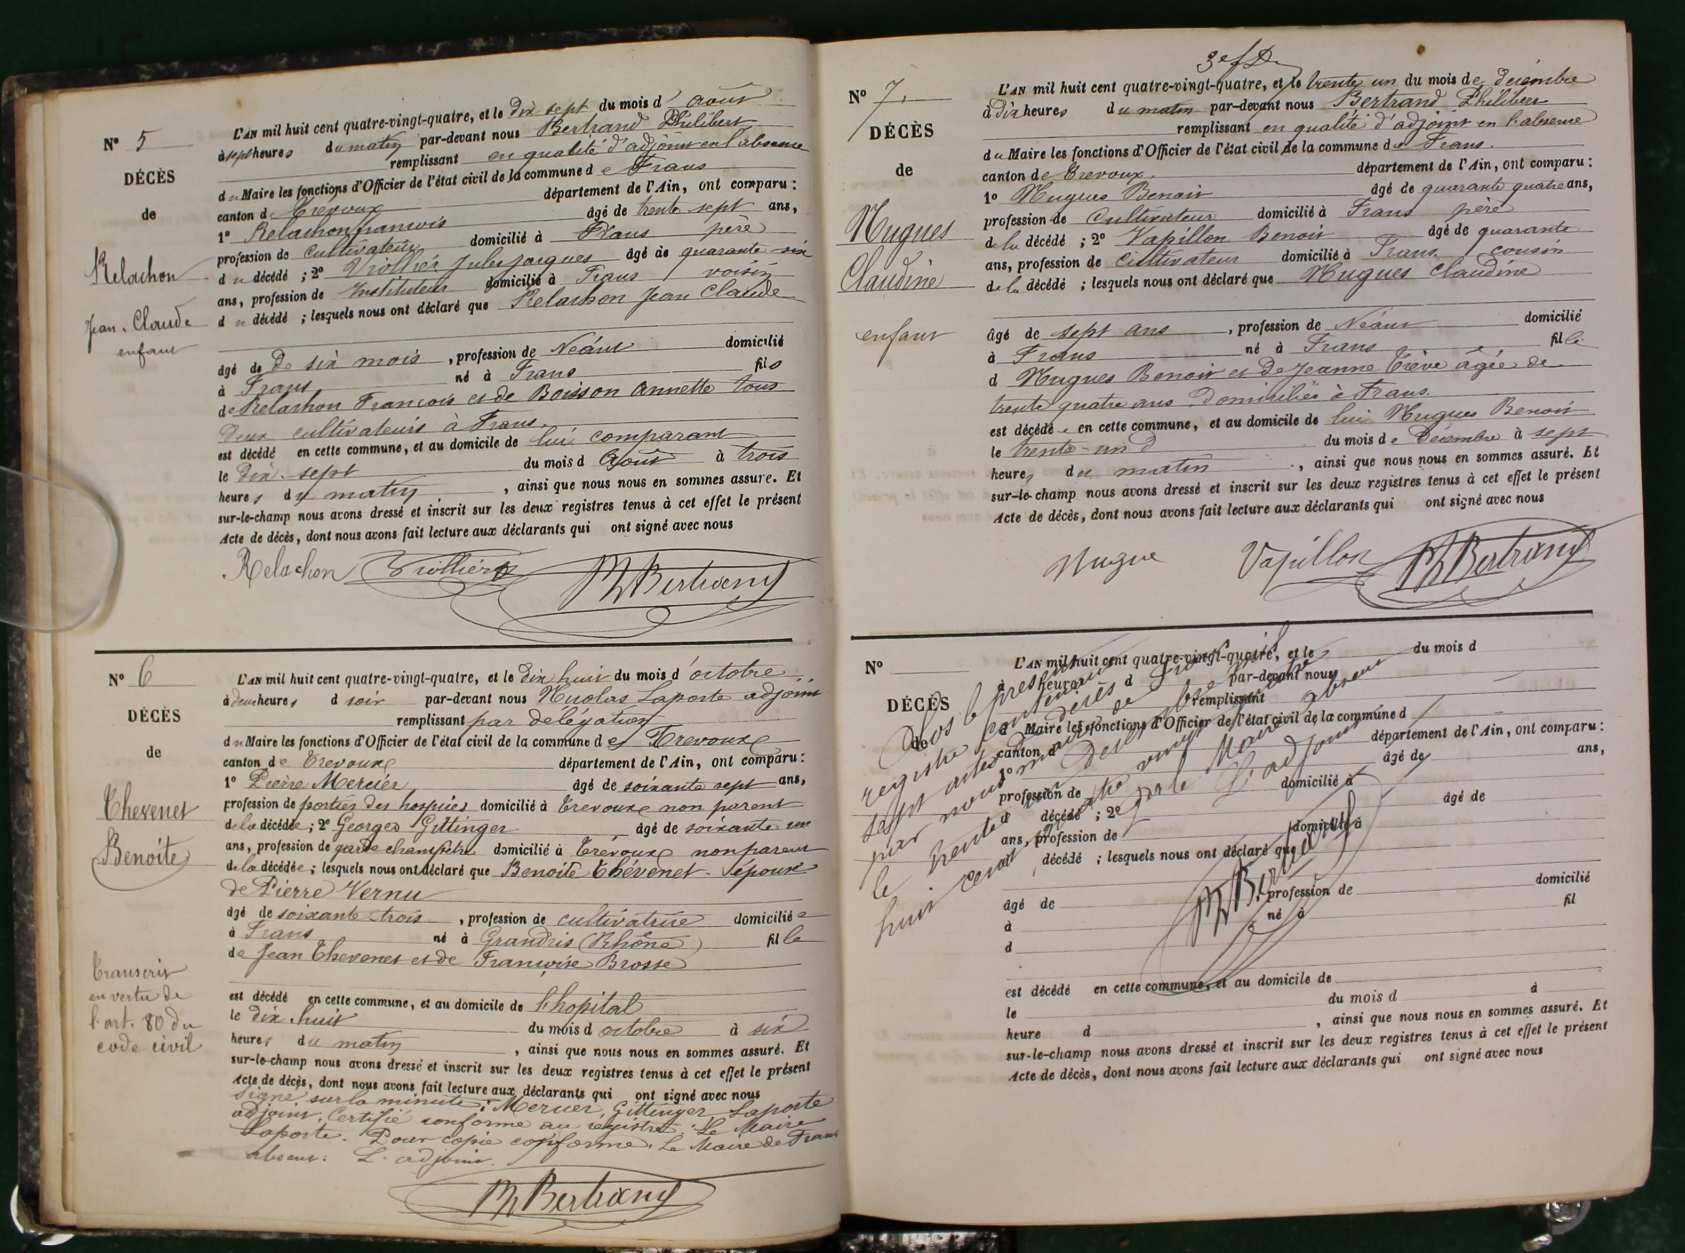 Nº 5
DÉCÈS
de
Relachon
Jean-Claude
enfant
L'AN mil huit cent quatre-vingt-quatre, et le dix sept du mois d' août
à sept heures du matin par-devant nous Bertrand Philibert
remplissant en qualité d'adjoint en l'absence
du Maire les fonctions d'Officier de l'état civil de la commune de Frans
canton de Trevoux département de l'Ain, ont comparu :
1º Relachon francois âgé de trente sept ans,
profession de cultivateur domicilié à Frans père
du décédé ; 2º Viollier Jules Jacques âgé de quarante six
ans, profession de Instituteur domicilié à Frans voisin
du décédé ; lesquels nous ont déclaré que Relachon Jean Claude
âgé de De six mois , profession de Néant domicilié
à Frans né à Frans fils
de Relachon Francois et de Boisson Annette tous
deux cultivateurs à Frans.
est décédé en cette commune, et au domicile de lui comparant
le dix-sept du mois d août à trois
heures du matin , ainsi que nous nous en sommes assuré. Et
sur-le-champ nous avons dressé et inscrit sur les deux registres tenus à cet effet le présent
Acte de décès, dont nous avons fait lecture aux déclarants qui ont signé avec nous
Relachon Viollier Ph Bertrand
Nº 6
DÉCÈS
de
Thevenet
Benoite
Transcrit
en vertu de
l'art. 80 du
code civil
L'AN mil huit cent quatre-vingt-quatre, et le dix huit du mois d'octobre
à deux heures d soir par-devant nous Nicolas Laporte adjoint
remplissant par délégation
du Maire les fonctions d'Officier de l'état civil de la commune de Trevoux
canton de Trevoux département de l'Ain, ont comparu :
1º Pierre Mercier âgé de soixante sept ans,
profession de portier des hospices domicilié à Trevoux non parent
de la décédée ; 2º Georges Gittinger âgé de soixante un
ans, profession de garde champêtre domicilié à Trévoux non parent
de la décédée ; lesquels nous ont déclaré que Benoite Thévenet - épouse
de Pierre Vernu
âgé de soixante-trois , profession de cultivatrice domiciliée
à Frans né à Grandris (Rhône) fille
de Jean Thevenet et de Françoise Brosse
est décédé en cette commune, et au domicile de l'hopital
le dix-huit du mois d octobre à six
heures du matin , ainsi que nous nous en sommes assuré. Et
sur-le-champ nous avons dressé et inscrit sur les deux registres tenus à cet effet le présent
Acte de décès, dont nous avons fait lecture aux déclarants qui ont signé avec nous
Signé sur la minute : Mercier, Gittinger Laporte
adjoint. Certifié conforme au registre : Le Maire
Laporte. Pour copie conforme. Le Maire de Frans
absent : L'adjoint.
Ph Bertrand
3 ef D
Nº 7
DÉCÈS
de
Hugues
Claudine
enfant
L'AN mil huit cent quatre-vingt-quatre, et le trente un du mois de décembre
à dix heures du matin par-devant nous Bertrand Philibert
remplissant en qualité d'adjoint en l'absence
du Maire les fonctions d'Officier de l'état civil de la commune de Frans.
canton de Trevoux. département de l'Ain, ont comparu :
1º Hugues Benoit âgé de quarante quatre ans,
profession de Cultivateur domicilié à Frans père
de la décédé ; 2º Vapillon Benoit âgé de quarante
ans, profession de Cultivateur domicilié à Frans cousin
de la décédé ; lesquels nous ont déclaré que Hugues Claudine
âgé de sept ans , profession de Néant domicilié
à Frans né à Frans fille
d Hugues Benoit et de Jeanne Trève âgée de
trente quatre ans domiciliés à Frans.
est décédée en cette commune, et au domicile de lui Hugues Benoit
le trente-un d du mois de Décembre à sept
heures du matin , ainsi que nous nous en sommes assuré. Et
sur-le-champ nous avons dressé et inscrit sur les deux registres tenus à cet effet le présent
Acte de décès, dont nous avons fait lecture aux déclarants qui ont signé avec nous
Hugue Vapillon Ph Bertrand
Nº
DÉCÈS
de
L'AN mil huit cent quatre-vingt-quatre, et le du mois d
à heure d par-devant nous
remplissant
d Maire les fonctions d'Officier de l'état civil de la commune d
canton d département de l'Ain, ont comparu :
1º âgé de ans,
profession de domicilié à
d décédé ; 2º âgé de
ans, profession de domicilié à
d décédé ; lesquels nous ont déclaré que
âgé de , profession de domicilié
à né à fil
d
est décédé en cette commune, et au domicile de
le du mois d à
heure d , ainsi que nous nous en sommes assuré. Et
sur-le-champ nous avons dressé et inscrit sur les deux registres tenus à cet effet le présent
Acte de décès, dont nous avons fait lecture aux déclarants qui ont signé avec nous
Clos le présent
registre contenant
sept actes de décès
par nous maire de Frans
le trente un décembre mil
huit cent quatre vingt quatre
p. le Maire absent
L'adjoint
Ph Bertrand